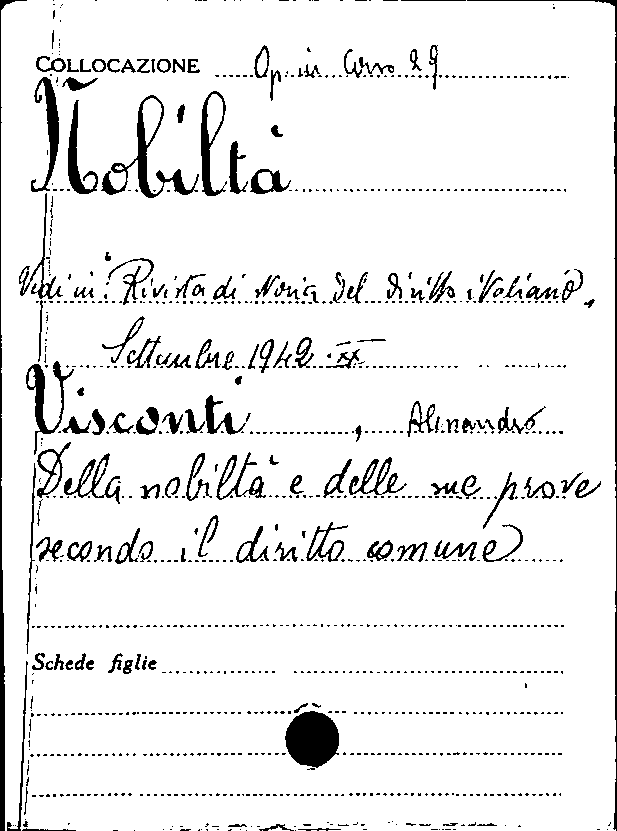 COLLOCAZIONE Op. in Corso 29
Nobiltà
Vedi in: Rivista di storia del diritto italiano,
Settembre 1942 - XX
Visconti, Alessandro
Della nobiltà e delle sue prove
secondo il diritto comune
Schede figlie